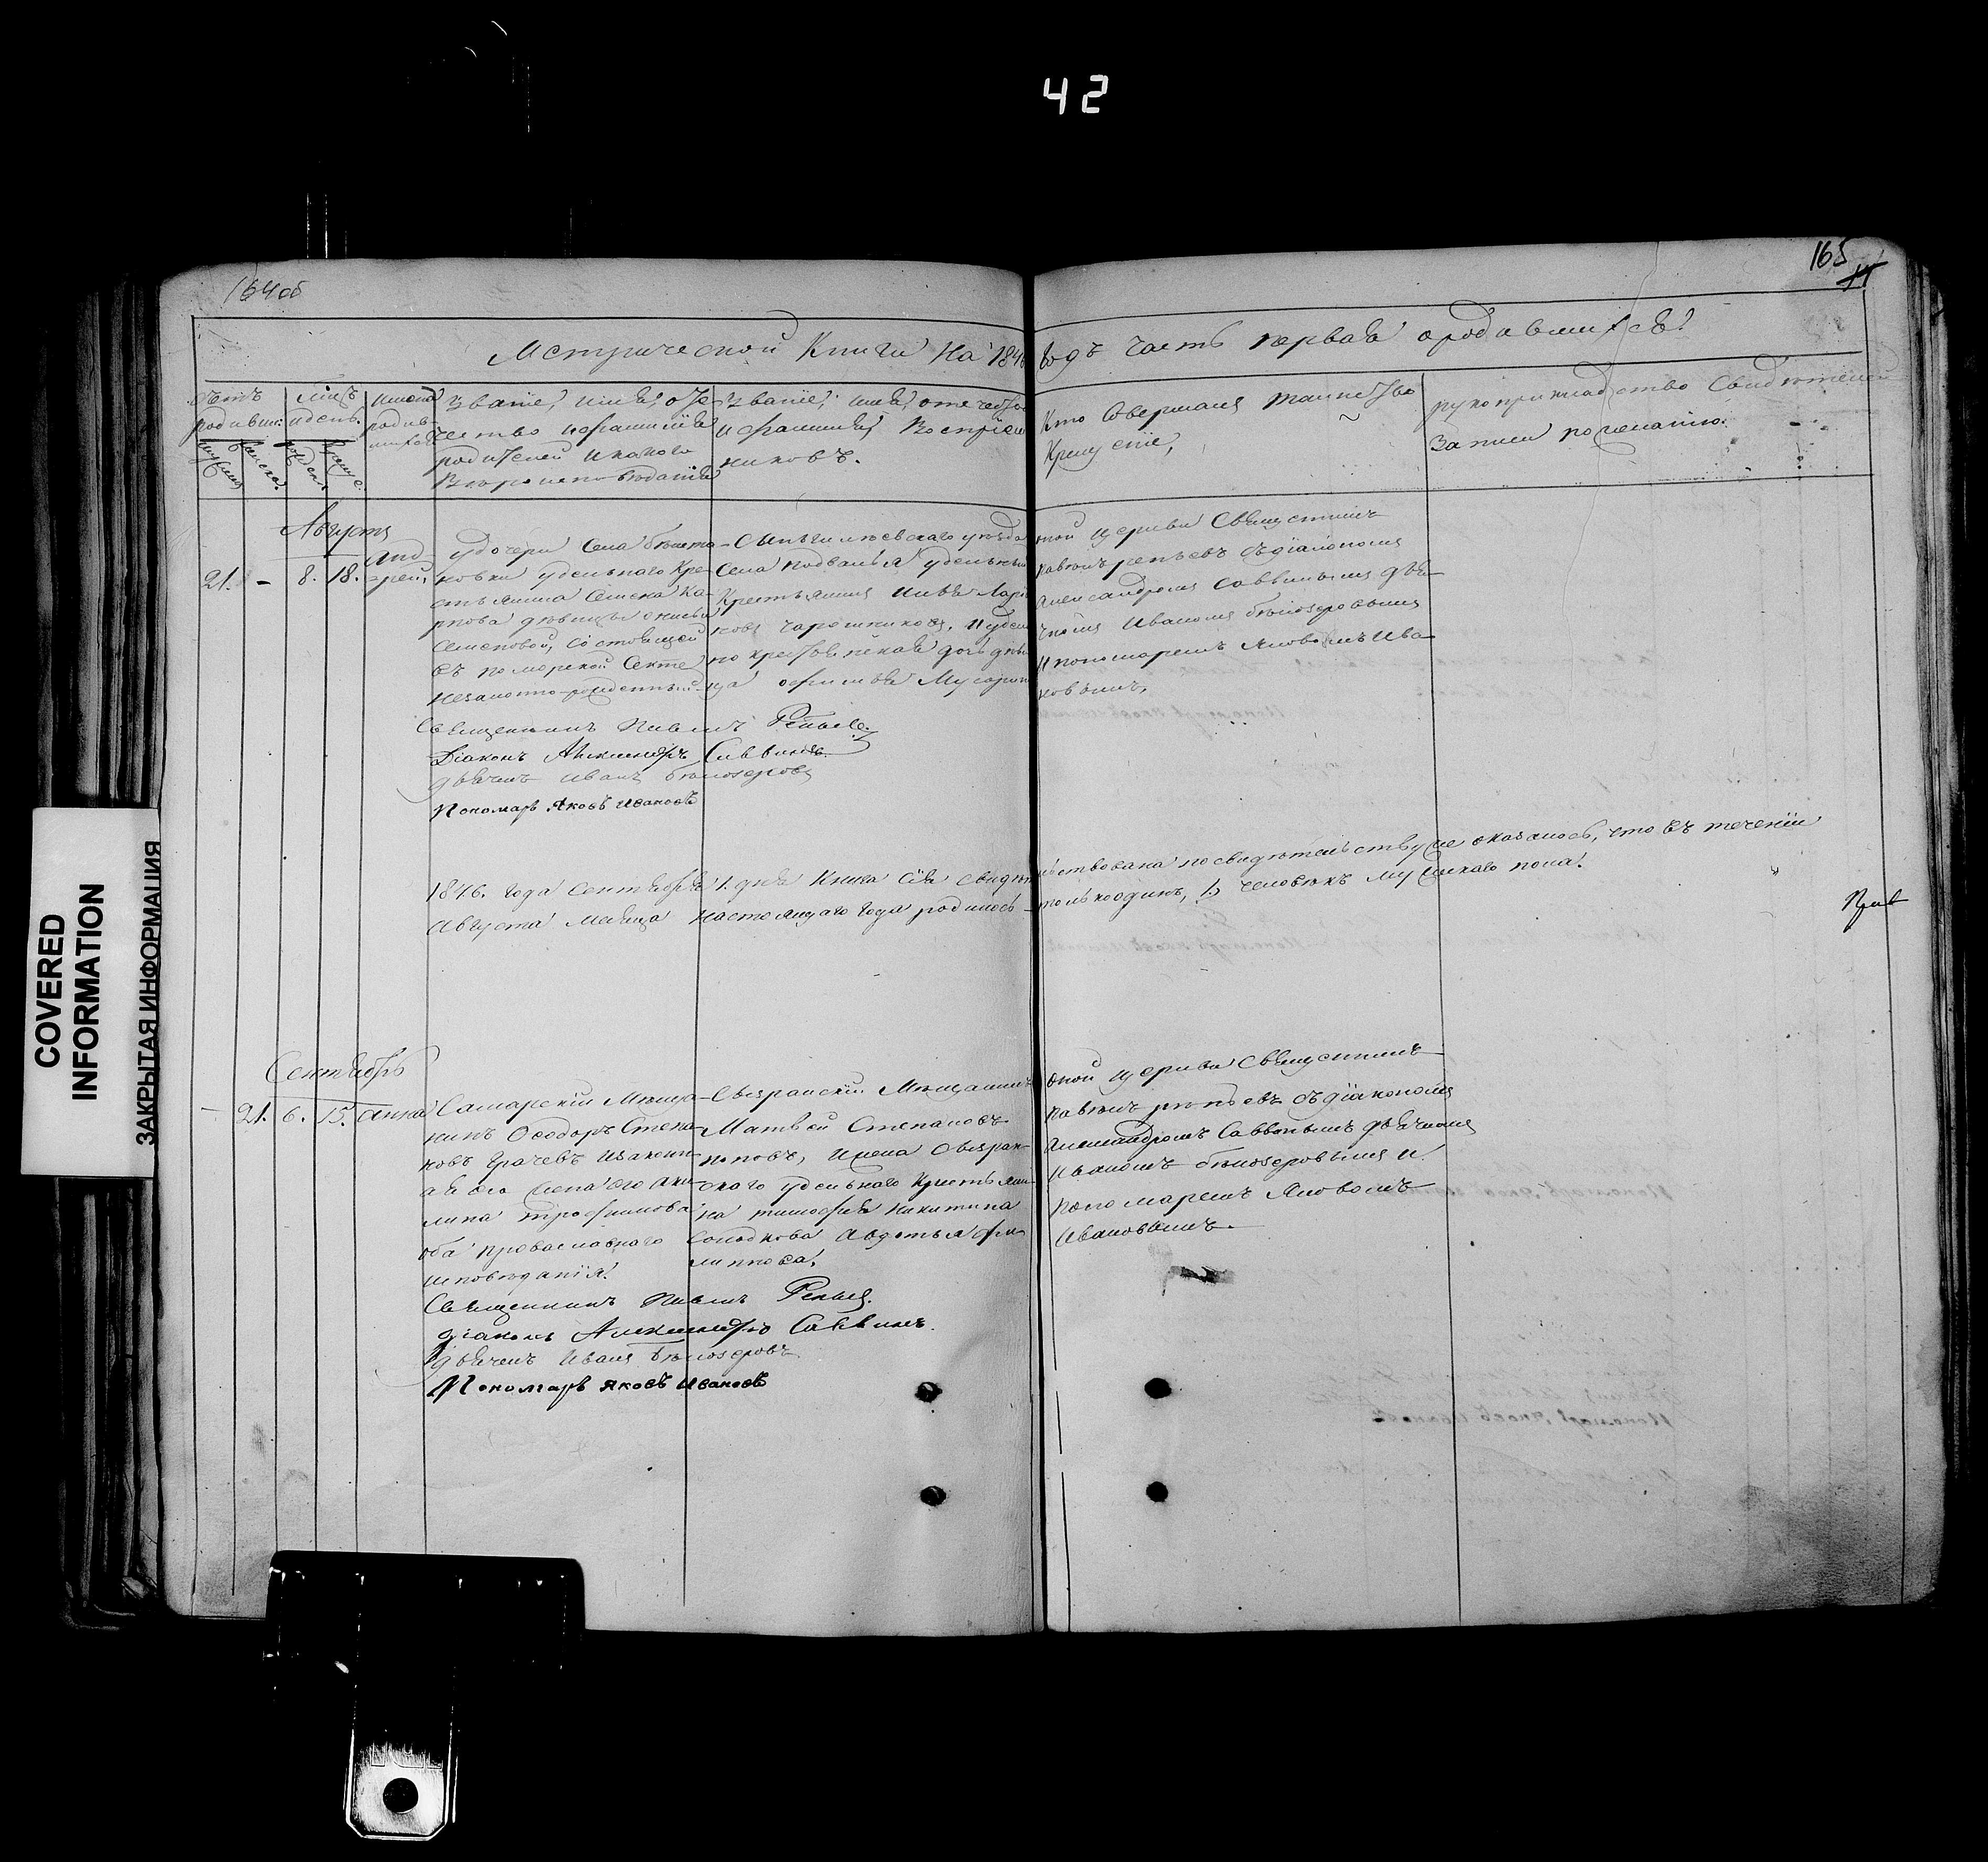 42
164об
165
Метрической Книги на 1846 годъ часть первая о родившихся.
Счетъ
родивш:
мужеска
женска.
Мць
и день.
рожден.
крещ:
Имена
родив-
шихся
Званіе, имя, оте-
чество и фамилія
родителей и какого
вѣроисповѣданія
Званіе, имя, отечество
и фамилія Воспріем-
никовъ.
Кто совершалъ таинство
Крещеніе,
рукоприкладство Свидѣтелей
записи по желанію.
Августъ
21. - 8. 18.
Анд-
рей,
У дочери села
новки удѣльнаго Кре-
стьянина Семена Ка-
рпова дѣвицы
Семеновой, состоящей
въ поморской Секте
незаконно-рожденный
уѣзда
села Подвалья удѣльный
Крестьянинъ
и удѣль-
но крестьянская дочь дѣви-
ца
той церкви Священникъ
Павелъ Репьевъ съ діакономъ
Александромъ Саввинымъ дья-
чкомъ Иваномъ Бѣлозеровымъ
и пономаремъ Яковомъ Ива-
новымъ,
Священникъ Павелъ Репьевъ
Діаконъ Александръ Саввинъ.
дьячекъ Иванъ Бѣлозеровъ
Пономарь Яковъ Ивановъ
1846. года Сентября 1. дня Книга сія свидѣтельствована по свидѣтельству же оказалось, что въ теченіи
Августа месяца настоящаго года родилось только одинъ, 1, человѣкъ мужскаго пола.
Сентябрь
- 21. 6. 15. Анна
Самарскій Мѣща-
нинъ Ѳеодоръ Степа-
новъ Грачевъ и законн-
ая его жена Аки-
лина Трофимова
оба православнаго
исповѣданія.
Сызранскій Мѣщанинъ
Матвей Степановъ
Поповъ, и жена Сызран-
скаго удѣльнаго Крестьяни-
на Тимофея Никитина
Солодкова Авдотья Фи-
липпова.
оной церкви Священникъ
Павелъ Репьевъ съ діакономъ
Александромъ Саввинымъ дьячкомъ
Иваномъ Бѣлозеровымъ и
пономаремъ Яковомъ
Ивановымъ.
Священникъ Павелъ Репьевъ.
діаконъ Александръ Саввинъ.
дьячекъ Иванъ Бѣлозеровъ.
Пономарь Яковъ Ивановъ
COVERED
INFORMATION
ЗАКРЫТАЯ ИНФОРМАЦИЯ